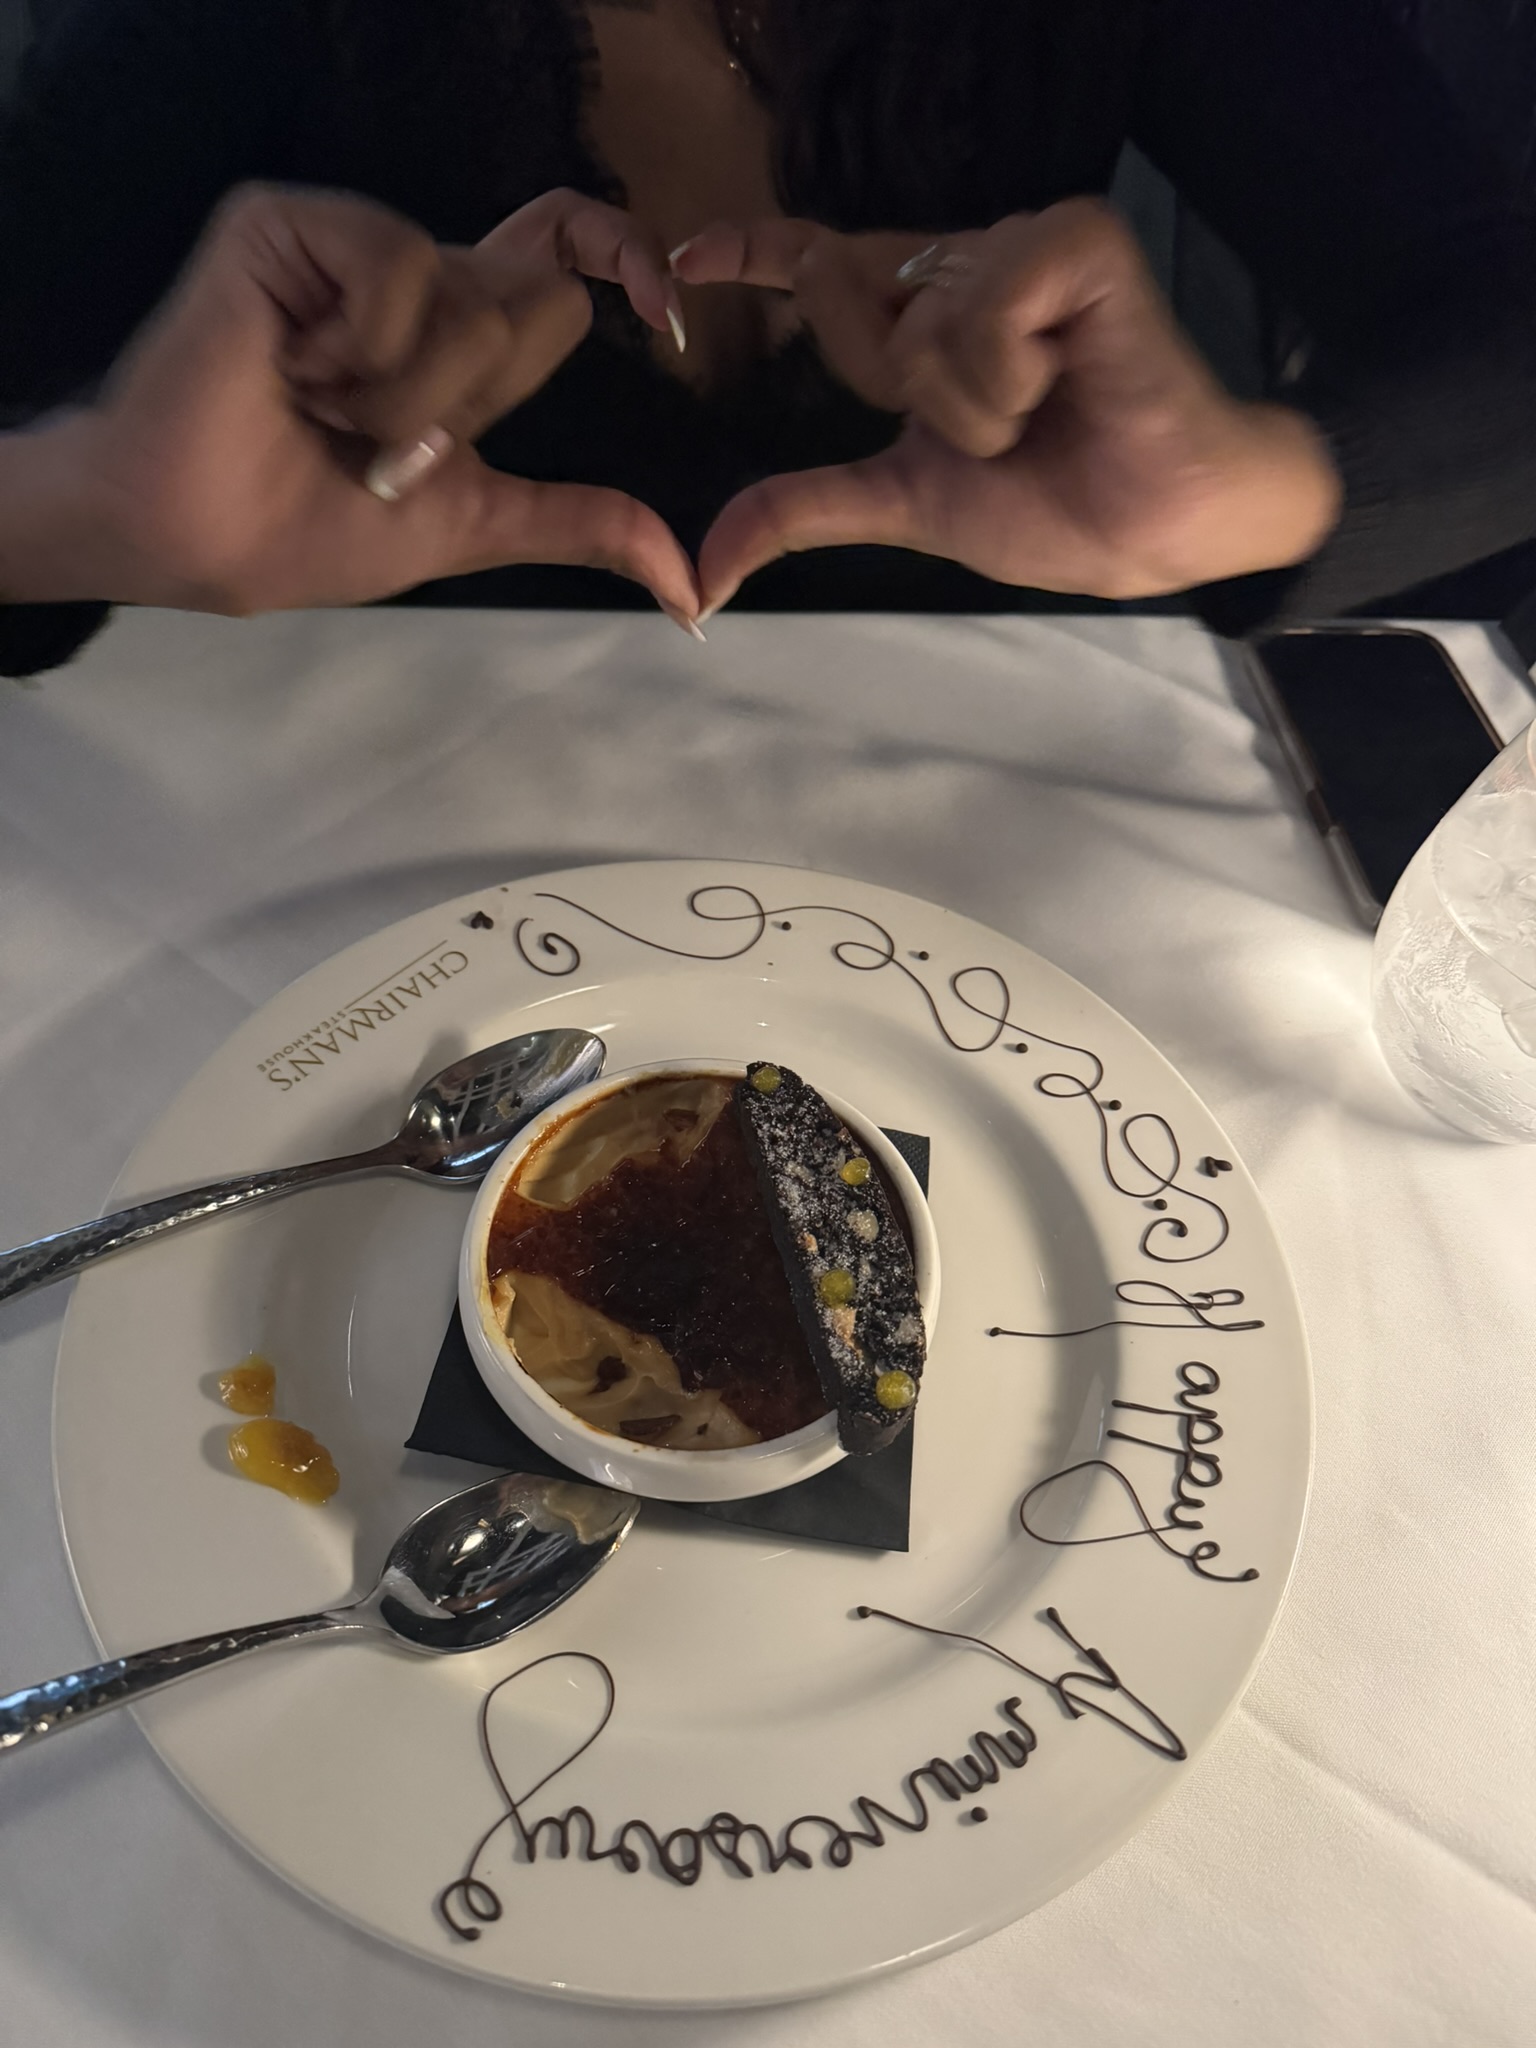 CHAIRMAN'S
STEAKHOUSE
Happy
Anniversary